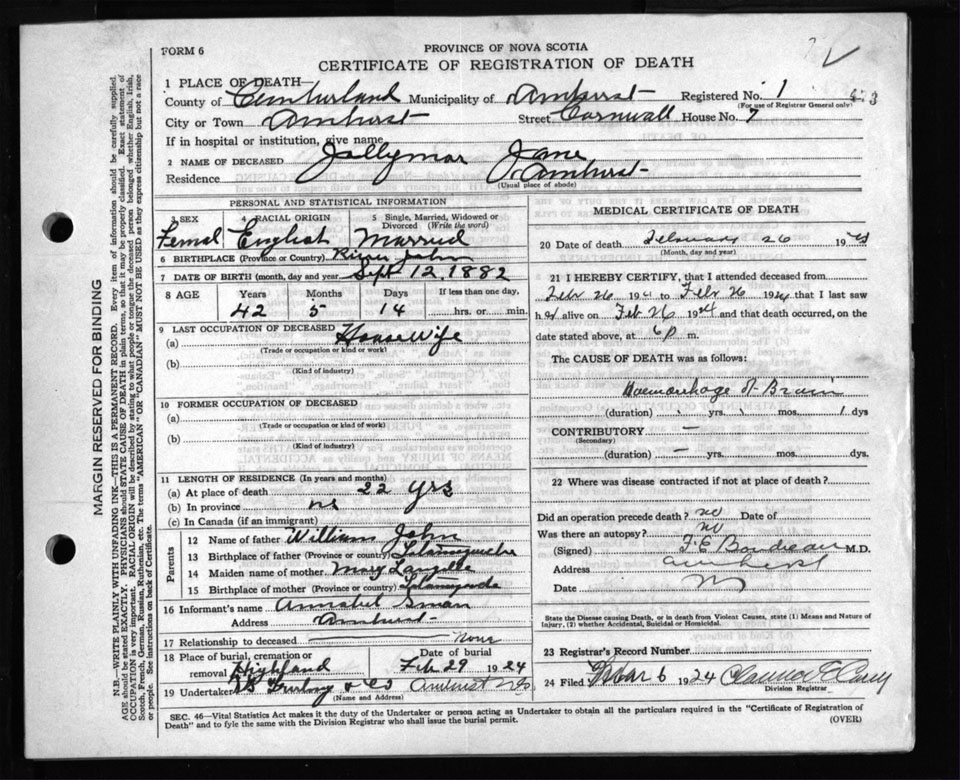 FORM 6
PROVINCE OF NOVA SCOTIA
CERTIFICATE OF REGISTRATION OF DEATH
1 PLACE OF DEATH—
County of Cumberland Municipality of Amherst Registered No. 1
(For use of Registrar General only)
City or Town Amherst Street Cornwall House No. 7
If in hospital or institution, give name
2 NAME OF DECEASED Jollymor Jane
Residence Amherst
(Usual place of abode)
PERSONAL AND STATISTICAL INFORMATION
3 SEX 4 RACIAL ORIGIN 5 Single, Married, Widowed or Divorced (Write the word)
Femal English Married
6 BIRTHPLACE (Province or Country) River John
7 DATE OF BIRTH (month, day and year) Sept 12. 1882
8 AGE Years Months Days If less than one day,
42 5 14 hrs. or min.
9 LAST OCCUPATION OF DECEASED
(a) House Wife
(Trade or occupation or kind or work)
(b)
(Kind of industry)
10 FORMER OCCUPATION OF DECEASED
(a)
(Trade or occupation or kind of work)
(b)
(Kind of industry)
11 LENGTH OF RESIDENCE (In years and months)
(a) At place of death 22 yrs
(b) In province ns
(c) In Canada (if an immigrant)
Parents
12 Name of father William John
13 Birthplace of father (Province or country)
14 Maiden name of mother Mary Langille
15 Birthplace of mother (Province or country)
16 Informant's name Annabel
Address Amherst
17 Relationship to deceased none
18 Place of burial, cremation or removal Highland Date of burial Feb 29 1924
19 Undertaker & Co Amherst N.S.
(Name and Address)
MEDICAL CERTIFICATE OF DEATH
20 Date of death February 26 19
(Month, day and year)
21 I HEREBY CERTIFY, that I attended deceased from
Feb 26 19 to Feb 26 19 that I last saw
h alive on Feb 26 19 and that death occurred, on
date stated above, at 6 p m.
The CAUSE OF DEATH was as follows:
Haemorrhage of Brain
(duration) yrs. mos. 1 dys
CONTRIBUTORY —
(Secondary)
(duration) — yrs. mos. dys.
22 Where was disease contracted if not at place of death?
Did an operation precede death? no Date of
Was there an autopsy? no
(Signed) F. E. Boudreau M.D.
Address Amherst
Date
State the Disease causing Death, or in death from Violent Causes, state (1) Means and Nature of Injury, (2) whether Accidental, Suicidal or Homicidal.
23 Registrar's Record Number
24 Filed Mar 6 1924
Division Registrar
SEC. 46—Vital Statistics Act makes it the duty of the Undertaker or person acting as Undertaker to obtain all the particulars required in the "Certificate of Registration of
Death" and to fyle the same with the Division Registrar who shall issue the burial permit. (OVER)
MARGIN RESERVED FOR BINDING
N.B.—WRITE PLAINLY WITH UNFADING INK—THIS IS A PERMANENT RECORD. Every item of information should be carefully supplied.
AGE should be stated EXACTLY. PHYSICIANS should STATE CAUSE OF DEATH in plain terms, so that it may be properly classified. Exact statement of
OCCUPATION is very important. RACIAL ORIGIN will be described by stating to what people or tongue the deceased person belonged whether English, Irish,
Scotch, French, German, Russian, Ruthenian, etc. The terms "AMERICAN" OR "CANADIAN" MUST NOT BE USED as they express citizenship but not a race
or people. See instructions on back of Certificate.